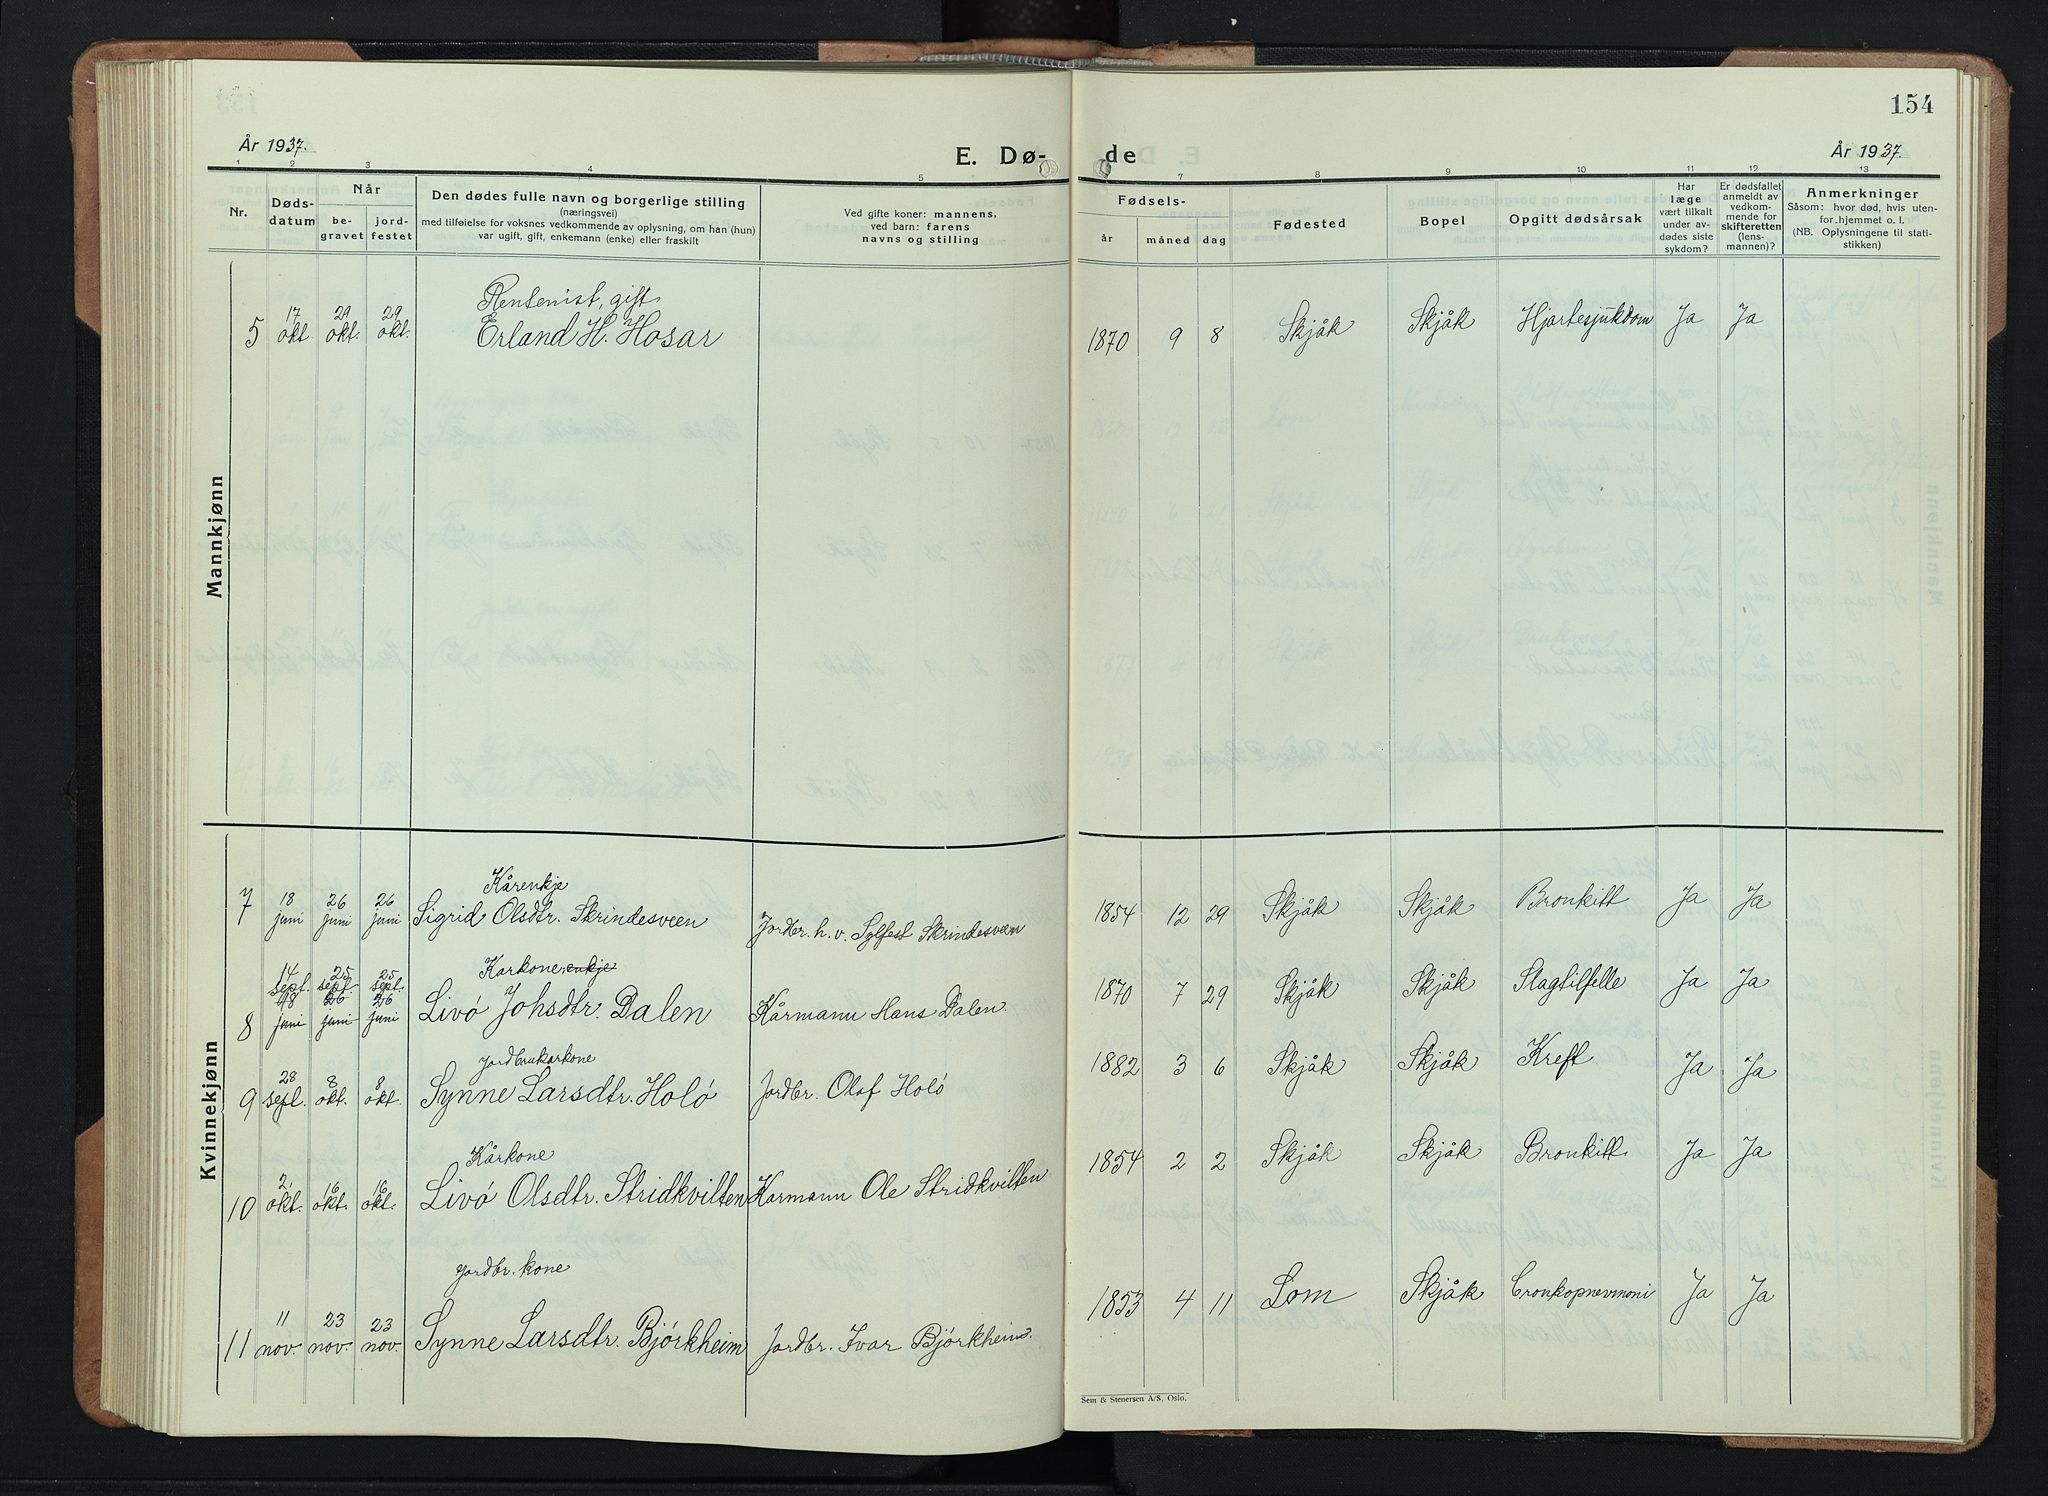 154
År 1937.
E. Dø-
de
År 1937.
1 2 3 4 5 7 8 9 10 11 12 13
Nr.
Døds-
datum
Når
be-
gravet
jord-
festet
Den dødes fulle navn og borgerlige stilling
(næringsvei)
med tilføielse for voksnes vedkommende av oplysning, om han (hun)
var ugift, gift, enkemann (enke) eller fraskilt
Ved gifte koner: mannens,
ved barn: farens
navns og stilling
Fødsels-
år måned dag
Fødested
Bopel
Opgitt dødsårsak
Har
læge
vært tilkalt
under av-
dødes siste
sykdom?
Er dødsfallet
anmeldt av
vedkom-
mende for
skifteretten
(lens-
mannen)?
Anmerkninger
Såsom: hvor død, hvis uten-
for hjemmet o. l.
(NB. Oplysningene til stati-
stikken)
Mannkjønn
Rentenist, gift
5 17 okt 29 okt. 29 okt. Erland H. Hosar 1870 9 8 Skjåk Skjåk Hjartesjukdom Ja Ja
Kvinnekjønn
Kårenkje
7 18 juni 26 juni 26 juni Sigrid Olsdtr. Skrindesveen Jordbr. h. v. Sylfest Skrindesveen 1854 12 29 Skjåk Skjåk Bronkitt Ja Ja
Karkone enkje
14 sept. 25 sept. 25 sept.
8 18 juni 26 juni 26 juni Livø Johsdtr. Dalen Kårmann Hans Dalen. 1870 7 29 Skjåk Skjåk Slagtilfelle Ja Ja
Jordbrukarkone
9 28 sept. 8 okt. 8 okt. Synne Larsdtr. Holø Jordbr. Olaf Holø 1882 3 6 Skjåk Skjåk Kreft Ja Ja
Kårkone
10 2. okt. 16 okt. 16 okt. Livø Olsdtr. Stridkvilten Karmann Ole Stridkvilten 1854 2 2 Skjåk Skjåk Bronkitt Ja Ja
Jordbr. kone
11 11 nov. 23 nov. 23 nov. Synne Larsdtr. Bjørkheim Jordbr. Ivar Bjørkheim. 1853 4 11 Lom Skjåk Cronkopnevmoni Ja Ja
Sem & Stenersen A/S, Oslo.